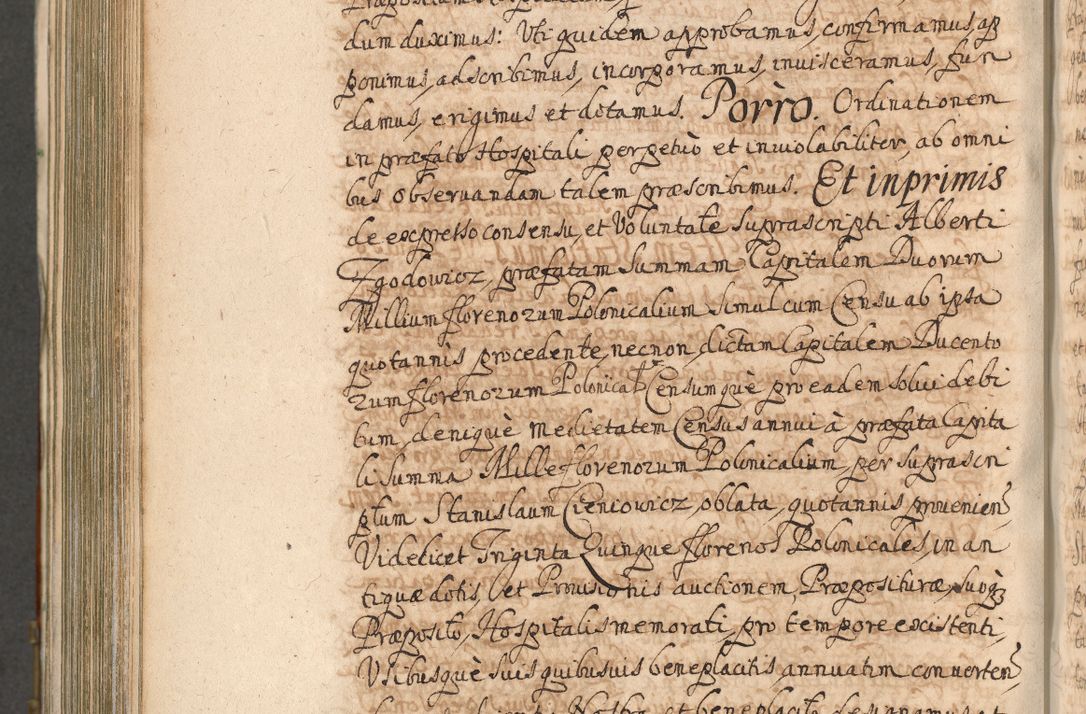 dum duximus: Uti quidem approbamus, confirmamus, ap
ponimus, adscribimus, incorporamus, invisceramus, fun
damus, erigimus et dotamus. Porrò. Ordinationem
in præfato Hospitali perpetuò et inviolabiliter, ab omni
bus observandam talem præscribimus. Et inprimis
de expresso consensu, et Voluntate suprascripti Alberti
Zgodowicz, præfatam summam Capitalem Duorum
Millium florenorum Polonicalium simul cum Censu ab ipsa
quotannis procedente, necnon, dictam Capitalem Ducento
rum florenorum Polonical Censumquè pro eadem solui debi
tum, deniquè medietatem Census annui à præfata Capita
li summa Mille florenorum Polonicalium, per suprascri
ptum Stanislaum Ciencowicz, oblata, quotannis provenien
Videlicet Triginta Quinque florenos Polonicales, in an
tiquæ dotis, et Provisionis auctionem, Præposituræ, suoq3
Præposito, Hospitalis memorati, pro tempore existenti,
Usibusquè suis quibusvis beneplacitis annuatim converten